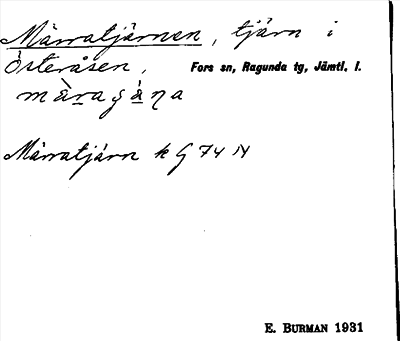 Märratjärnen, tjärn i
Österåsen, Fors sn, Ragunda tg, Jämtl. l.
Märratjärn k G 74 N
E. BURMAN 1931